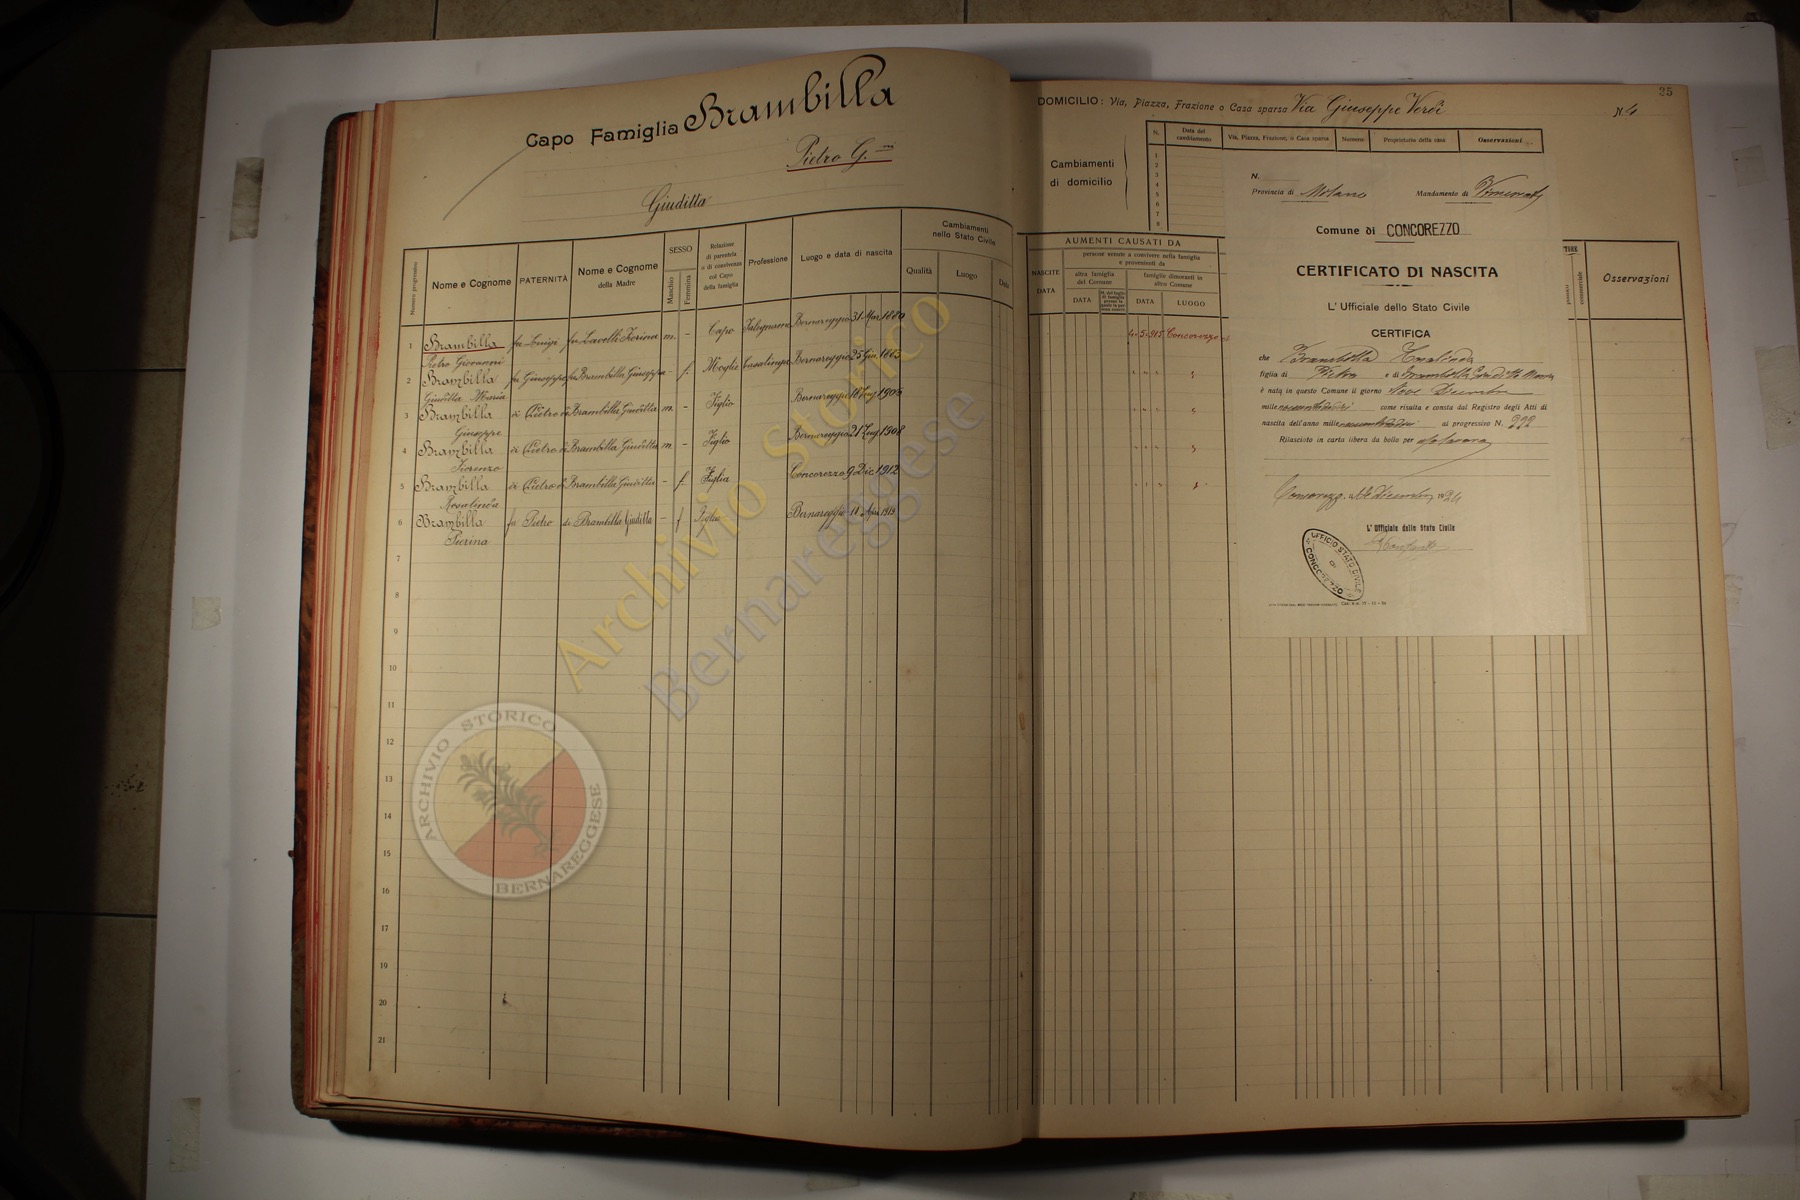 Capo Famiglia Brambilla
Pietro G.ni
Giuditta
Numero progressivo
Nome e Cognome
PATERNITÀ
Nome e Cognome della Madre
SESSO
Maschio
Femmina
Relazione di parentela o di convivenza col Capo della famiglia
Professione
Luogo e data di nascita
Cambiamenti nello Stato Civile
Qualità
Luogo
Data
1 Brambilla fu Luigi fu Lavelli Fiorina m. - Capo Falegname Bernareggio 31 Mar 1880
Pietro Giovanni
2 Brambilla fu Giuseppe fu Brambilla Giuseppa - f. Moglie Casalinga Bernareggio 25 Giu 1883
Giuditta Maria
3 Brambilla di Pietro di Brambilla Giuditta m. - Figlio Bernareggio 1906
Giuseppe
4 Brambilla di Pietro di Brambilla Giuditta m - Figlio Bernareggio 21 Lug. 1908
Fiorenzo
5 Brambilla di Pietro di Brambilla Giuditta - f. Figlia Concorezzo 9 Dic 1912
Rosalinda
6 Brambilla fu Pietro di Brambilla Giuditta - f Figlia Bernareggio 1919
Pierina
7
8
9
10
11
12
13
14
15
16
17
18
19
20
21
35
DOMICILIO: Via, Piazza, Frazione o Casa sparsa Via Giuseppe Verdi N. 4
Cambiamenti di domicilio
N.
Data del cambiamento
Via, Piazza, Frazione, o Casa sparsa
Numero
Proprietario della casa
Osservazioni
1
2
3
4
5
6
7
8
AUMENTI CAUSATI DA
NASCITE
DATA
persone venute a convivere nella famiglia e provenienti da
altra famiglia del Comune
famiglie dimoranti in altro Comune
DATA
DATA
LUOGO
4-5-915 Concorezzo
commerciale
Osservazioni
N.
Provincia di Milano Mandamento di Vimercate
Comune di CONCOREZZO
CERTIFICATO DI NASCITA
L' Ufficiale dello Stato Civile
CERTIFICA
che Brambilla
figlia di Pietro e di Brambilla Giuditta Maria
è nata in questo Comune il giorno nove Dicembre
mille novecentododici come risulta e consta dal Registro degli Atti di
nascita dell'anno mille novecentododici al progressivo N. 222
Rilasciato in carta libera da bollo per
Concorezzo, Dicembre 1924
L' Ufficiale dello Stato Civile
UFFICIO STATO CIVILE DI CONCOREZZO
Archivio Storico
Bernareggese
ARCHIVIO STORICO BERNAREGGESE